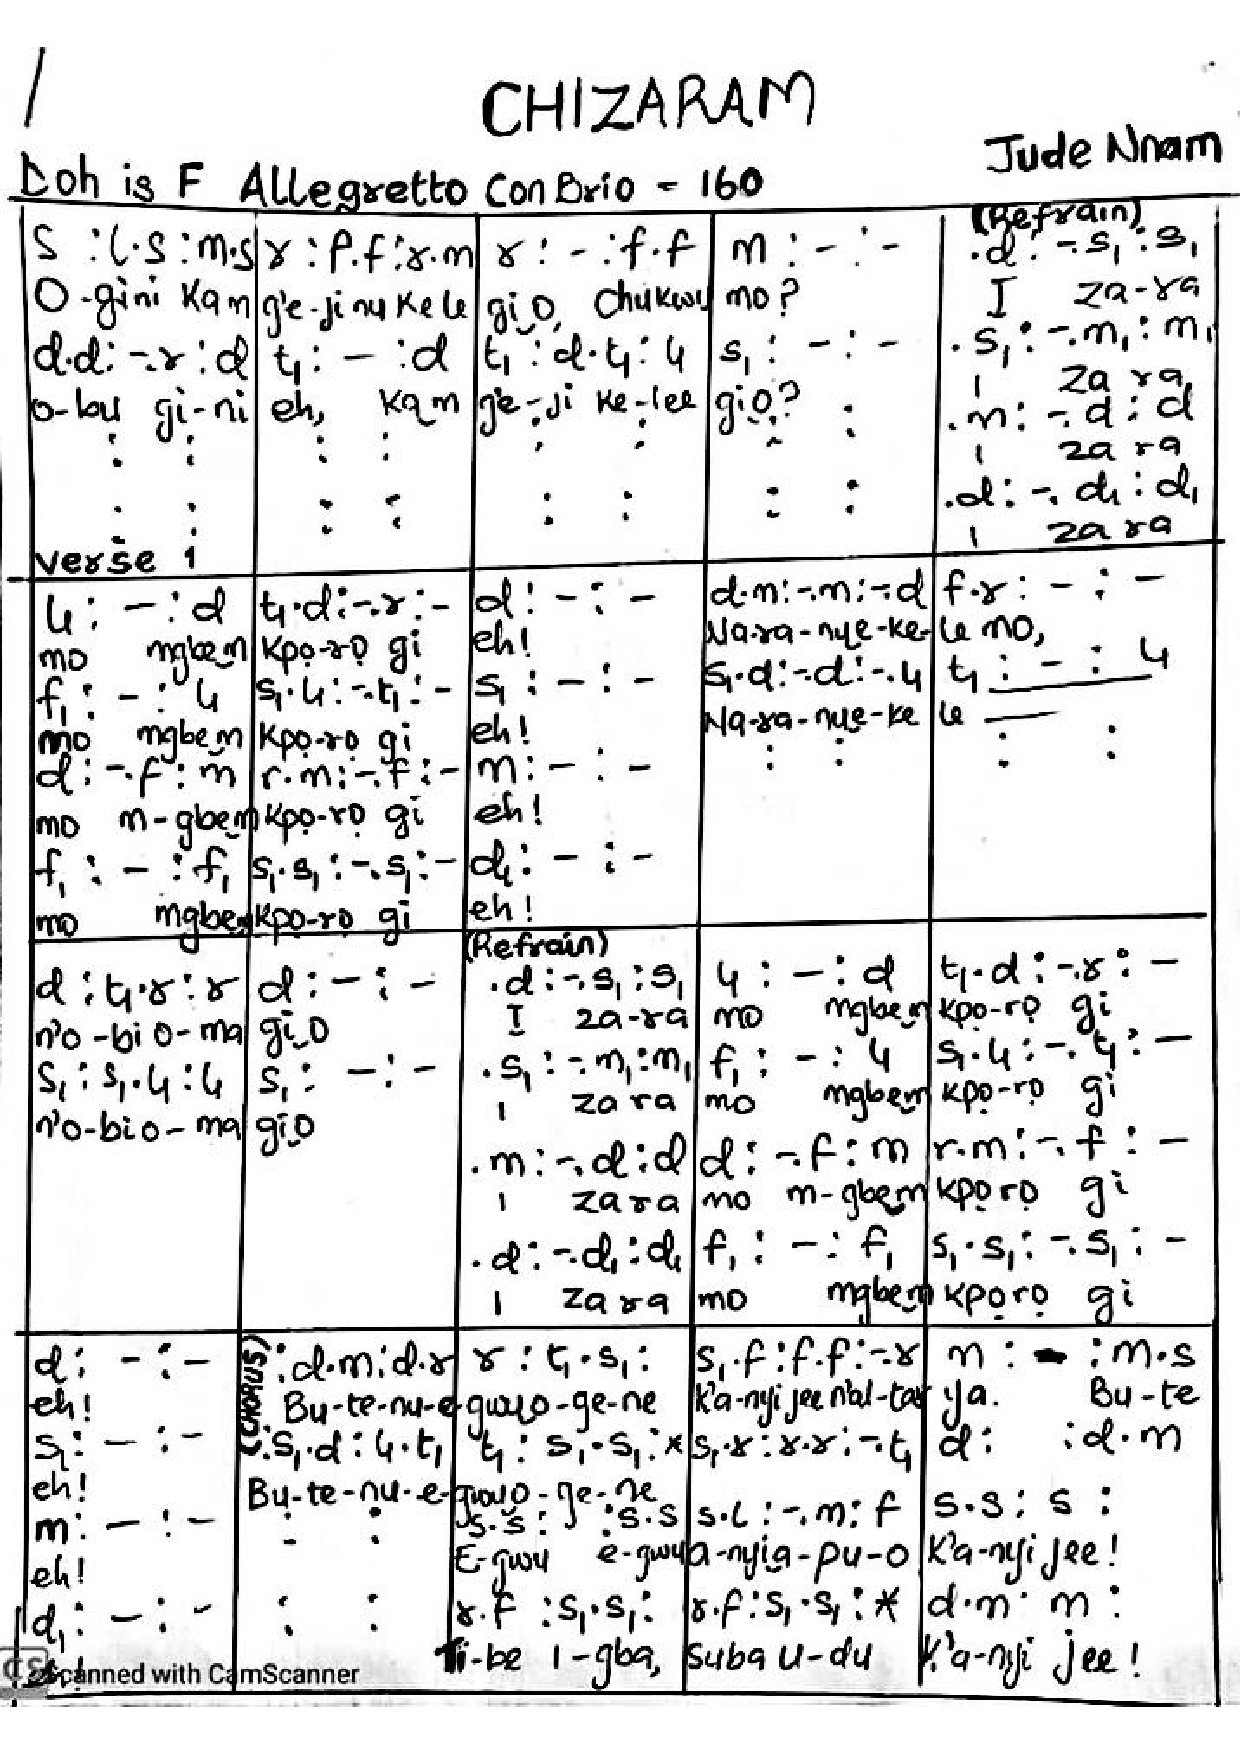 CHIZARAM
Jude Nnam
Doh is F Allegretto Con Brio - 160
(Refrain)
s :l.s :m.s | r :f.f :r.m | r : - :f.f | m : - : - | .d :-.s₁ :s₁
O-gini Kam | g'e-ji nu Ke le | gi O, Chukwu | mo? | I za-ra
d.d :-.r :d | t₁ : - :d | t₁ :d.t₁ :l₁ | s₁ : - : - | .s₁ :-.m₁ :m₁
o-bu gi-ni | eh, Kam | g'e-ji ke-lee | gi O? | I za ra
: : | : : | : : | : : | .m :-.d :d
I za ra
: : | : : | : : | : : | .d :-.d₁ :d₁
I za ra
verse 1
l₁ : - :d | t₁.d :-.r :- | d : - : - | d.m :-.m :-.d | f.r : - : -
mo mgbem | kpọ-rọ gi | eh! | Na-ra-nye-ke- | le mo,
f₁ : - :l₁ | s₁.l₁ :-.t₁ :- | s₁ : - : - | s₁.d :-.d :-.l₁ | t₁ : - : l₁
mo mgbem | kpọ-rọ gi | eh! | Na-ra-nye-ke | le
d :-.f :m | r.m :-.f :- | m : - : - | : : | : :
mo m-gbem | kpọ-rọ gi | eh!
f₁ : - :f₁ | s₁.s₁ :-.s₁ :- | d₁ : - : -
mo mgbem | kpọ-rọ gi | eh!
(Refrain)
d :t₁.r :r | d : - : - | .d :-.s₁ :s₁ | l₁ : - :d | t₁.d :-.r : -
n'o-bi O-ma | gi O | I za-ra | mo mgbem | kpọ-rọ gi
s₁ :s₁.l₁ :l₁ | s₁ : - : - | .s₁ :-.m₁ :m₁ | f₁ : - :l₁ | s₁.l₁ :-.t₁ : -
n'o-bi o-ma | gi O | I za ra | mo mgbem | kpọ-rọ gi
.m :-.d :d | d :-.f :m | r.m :-.f : -
I za ra | mo m-gbem | kpọrọ gi
.d :-.d₁ :d₁ | f₁ : - :f₁ | s₁.s₁ :-.s₁ : -
I za ra | mo mgbem | kpọrọ gi
(CHORUS)
d : - : - | :d.m :d.r | r :t₁.s₁ : | s₁.f :f.f :-.r | m : - :m.s
eh! | Bu-te-nu-e- | gwu o-ge-ne | K'a-nyi jee n'al-tar | ya. Bu-te
s₁ : - : - | :s₁.d :l₁.t₁ | t₁ :s₁.s₁ :* | s₁.r :r.r :-.t₁ | d : :d.m
eh! | Bu-te-nu-e- | gwu o-ge-ne
m : - : - | : : | s.s : :s.s | s.l :-.m :f | s.s :s :
eh! | E-gwu e-gwu | a-nyi a-pu-o | K'a-nyi jee!
d₁ : - : - | : : | r.f :s₁.s₁ : | r.f :s₁.s₁ :* | d.m m :
Ti-be I-gba, | Suba u-du | K'a-nyi jee!
CS Scanned with CamScanner